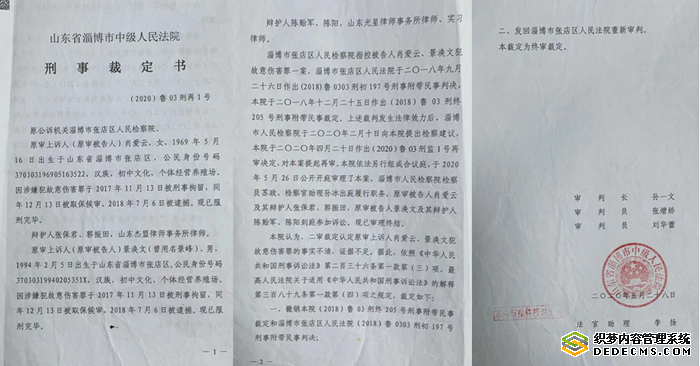 山东省淄博市中级人民法院
刑事裁定书
（2020）鲁03刑再1号
原公诉机关淄博市张店区人民检察院。
原审上诉人（原审被告人）肖爱云，女，1969年5月
16日出生于山东省淄博市张店区，公民身份号码
，汉族，初中文化，个体经营养殖场。
因涉嫌犯故意伤害罪于2017年11月13日被刑事拘留，同
年12月13日被取保候审，2018年7月6日被逮捕。现已服
刑完毕。
辩护人张保君、郭振田，山东杰盟律师事务所律师。
原审上诉人（原审被告人）景涣文（曾用名景峰），男，
1994年2月5日出生于山东省淄博市张店区，公民身份号
码，汉族，初中文化，个体经营养殖场。
因涉嫌犯故意伤害罪于2017年11月13日被刑事拘留，同
年12月13日被取保候审，2018年7月6日被逮捕。现已服
刑完毕。
— 1 —
辩护人陈贻军、陈阳，山东光星律师事务所律师、实习
律师。
淄博市张店区人民检察院指控被告人肖爱云、景涣文犯
故意伤害罪一案，淄博市张店区人民法院于二〇一八年九月
二十六日作出(2018)鲁0303刑初197号刑事附带民事判决，
本院于二〇一八年十二月二十五日作出(2018)鲁03刑终
205号刑事附带民事裁定。上述裁判发生法律效力后，淄博
市人民检察院于二〇二〇年二月十日向本院提出检察建议，
本院于二〇二〇年四月二十日作出(2020)鲁03刑监1号再
审决定，对本案提起再审。本院依法另行组成合议庭，于2020
年5月26日公开开庭审理了本案。淄博市人民检察院检察
员苏政、检察官助理孙冰出庭履行职务。原审被告人肖爱云
及其辩护人张保君、郭振田，原审被告人景涣文及其辩护人
陈贻军、陈阳到庭参加诉讼。现已审理终结。
本院认为，二审裁定认定原审上诉人肖爱云、景涣文犯
故意伤害罪的事实不清，证据不足。据此，依照《中华人民
共和国刑事诉讼法》第二百三十六条第一款第（三）项、最
高人民法院关于适用《中华人民共和国刑事诉讼法》的解释
第三百八十九条第一款第（四）项之规定，裁定如下：
一、撤销本院(2018)鲁03刑终205号刑事附带民事
裁定和淄博市张店区人民法院(2018)鲁0303刑初197号
刑事附带民事判决；
— 2 —
二、发回淄博市张店区人民法院重新审判。
本裁定为终审裁定。
审判长 孙一文
审判员 张增娇
审判员 刘华蕾
山东省淄博市中级人民法院
二〇二〇年五月二十八日
法官助理 李扬
织梦内容管理系统
DEDECMS.COM